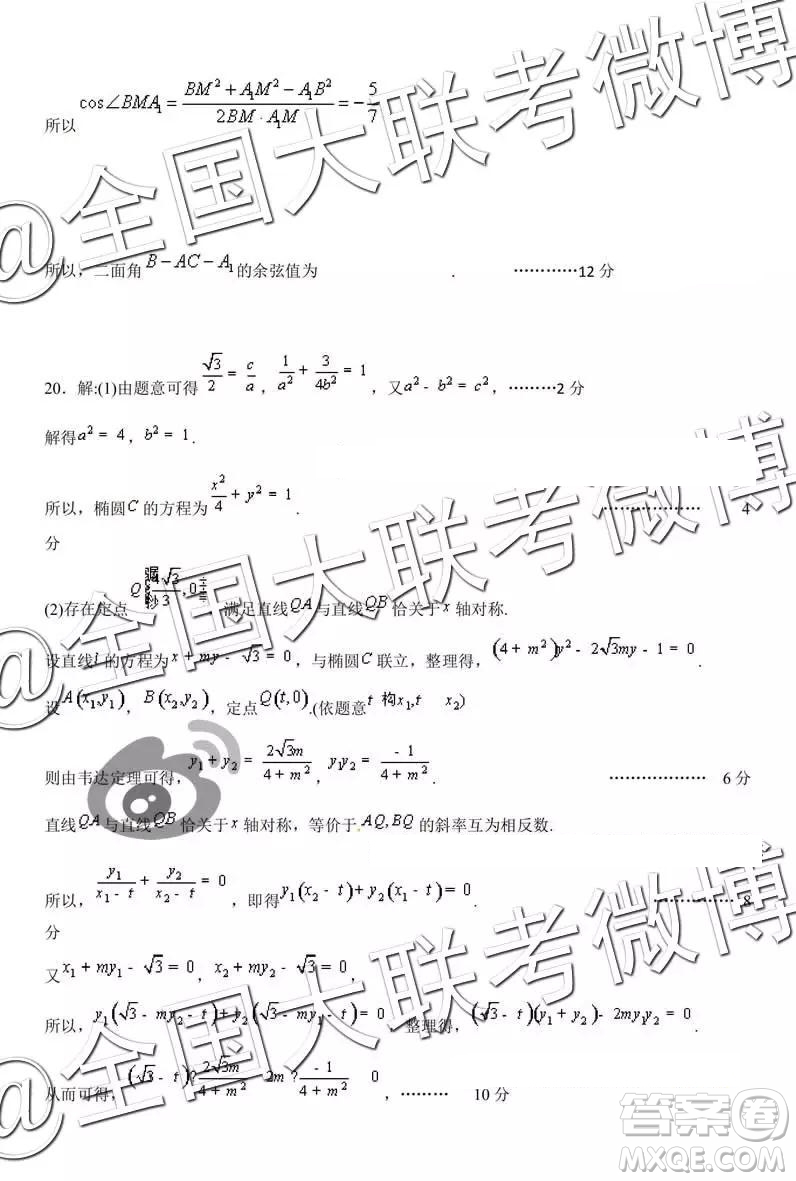 所以 cos∠BMA₁ = (BM² + A₁M² − A₁B²)/(2BM · A₁M) = −5/7
所以，二面角 B − AC − A₁ 的余弦值为 . …………12 分
20．解:(1)由题意可得 √3/2 = c/a，1/a² + 3/(4b²) = 1，又a² - b² = c²，………2 分
解得a² = 4，b² = 1．
所以，椭圆C 的方程为 x²/4 + y² = 1．………………… 4
分
(2)存在定点 Q(4√3/3,0) 满足直线QA与直线QB 恰关于x 轴对称.
设直线l 的方程为x + my - √3 = 0，与椭圆C 联立，整理得，(4 + m²)y² - 2√3my - 1 = 0．
设 A(x₁,y₁)，B(x₂,y₂)，定点Q(t,0).(依题意t 构x₁,t x₂)
则由韦达定理可得，y₁ + y₂ = 2√3m/(4 + m²)，y₁y₂ = -1/(4 + m²)．………………… 6 分
直线QA与直线QB 恰关于x 轴对称，等价于AQ,BQ 的斜率互为相反数.
所以，y₁/(x₁ - t) + y₂/(x₂ - t) = 0，即得y₁(x₂ - t)+ y₂(x₁ - t) = 0．……………… 8
分
又x₁ + my₁ - √3 = 0，x₂ + my₂ - √3 = 0，
所以，y₁(√3 - my₂ - t)+ y₂(√3 - my₁ - t) = 0，整理得，(√3 - t)(y₁ + y₂)- 2my₁y₂ = 0．
从而可得，(√3 - t)?2√3m/(4 + m²) 2m ?-1/(4 + m²) 0，……… 10 分
@全国大联考微博
@全国大联考微博
@全国大联考微博
答案卷
MXQE.COM